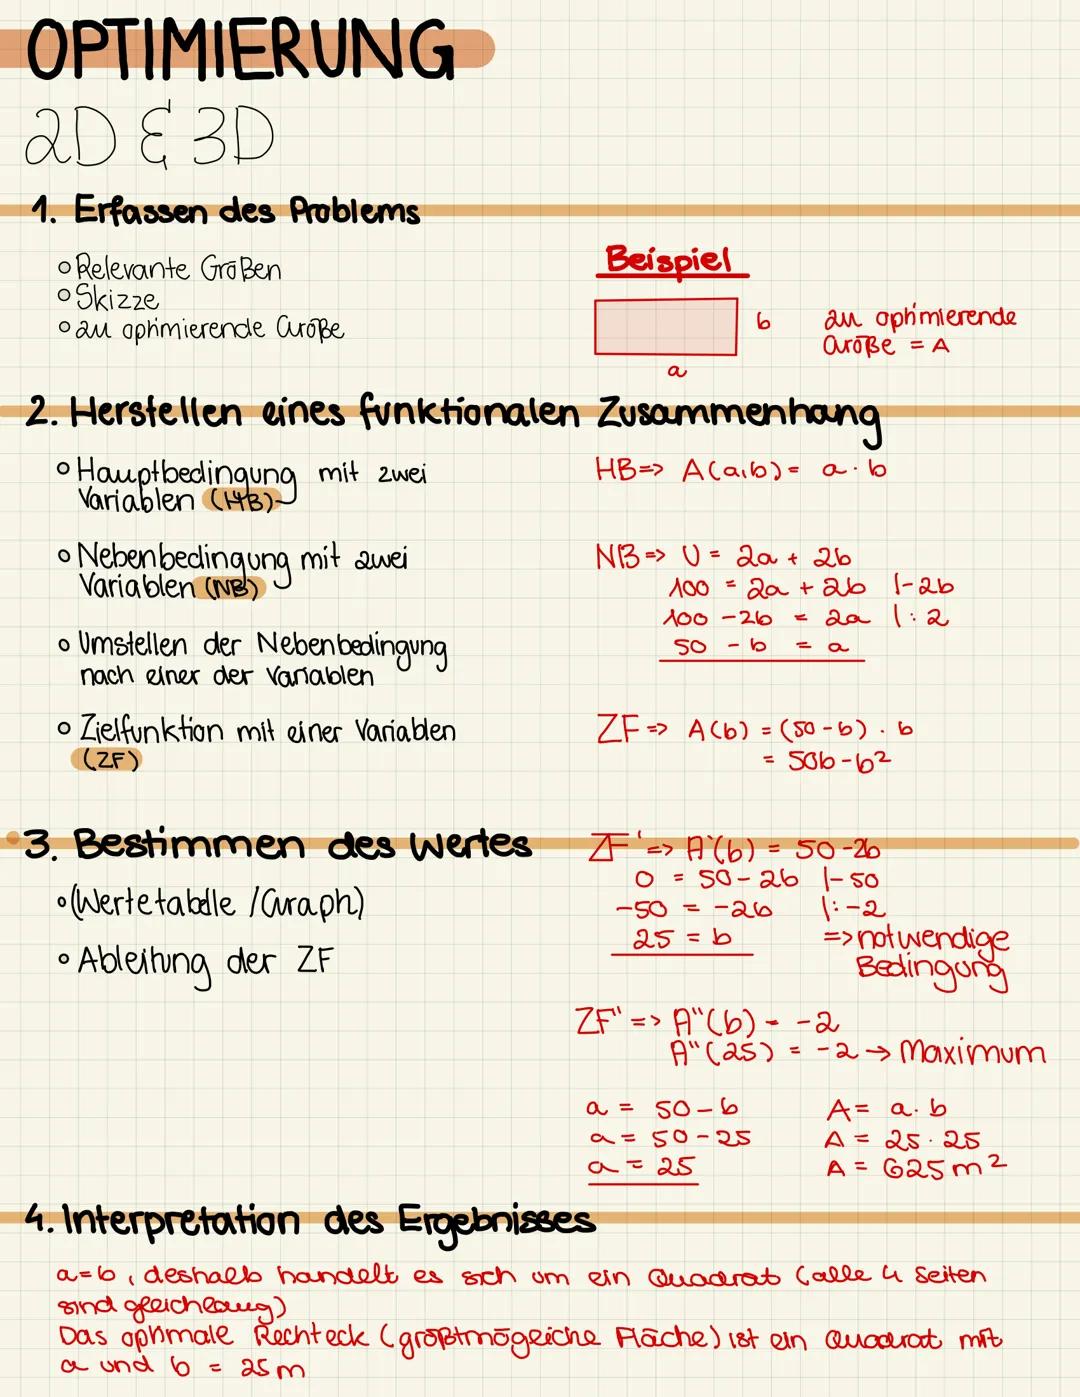 OPTIMIERUNG
2D & 3D
1. Erfassen des Problems
○ Relevante Größen
○ Skizze
○ zu optimierende Größe
Beispiel
b
a
zu optimierende
Größe = A
2. Herstellen eines funktionalen Zusammenhang
○ Hauptbedingung mit zwei
Variablen (HB)
HB=> A(a,b) = a · b
○ Nebenbedingung mit zwei
Variablen (NB)
NB => U = 2a + 2b
100 = 2a + 2b |-2b
100 - 2b = 2a |: 2
50 - b = a
○ Umstellen der Nebenbedingung
nach einer der Variablen
○ Zielfunktion mit einer Variablen
(ZF)
ZF => A(b) = (50-b) · b
= 50b - b²
3. Bestimmen des Wertes
○ (Wertetabelle / Graph)
○ Ableitung der ZF
ZF' => A'(b) = 50-2b
0 = 50-2b |-50
-50 = -2b |:-2
25 = b
=> notwendige
Bedingung
ZF" => A"(b) = -2
A"(25) = -2 → Maximum
a = 50-b
a = 50-25
a = 25
A = a · b
A = 25 · 25
A = 625 m²
4. Interpretation des Ergebnisses
a=b, deshalb handelt es sich um ein Quadrat (alle 4 Seiten
sind gleichlang)
Das optimale Rechteck (größtmögliche Fläche) ist ein Quadrat mit
a und b = 25 m